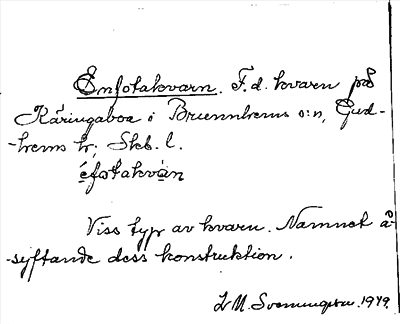 Enfotakvarn. F.d. kvarn på
Käringaboa i Brunnhems s:n, Gud-
-hems hr; Skb. l.
éfotakvàn
Viss typ av kvarn. Namnet å-
-syftande dess konstruktion.
L M. Svenungsson. 1949.